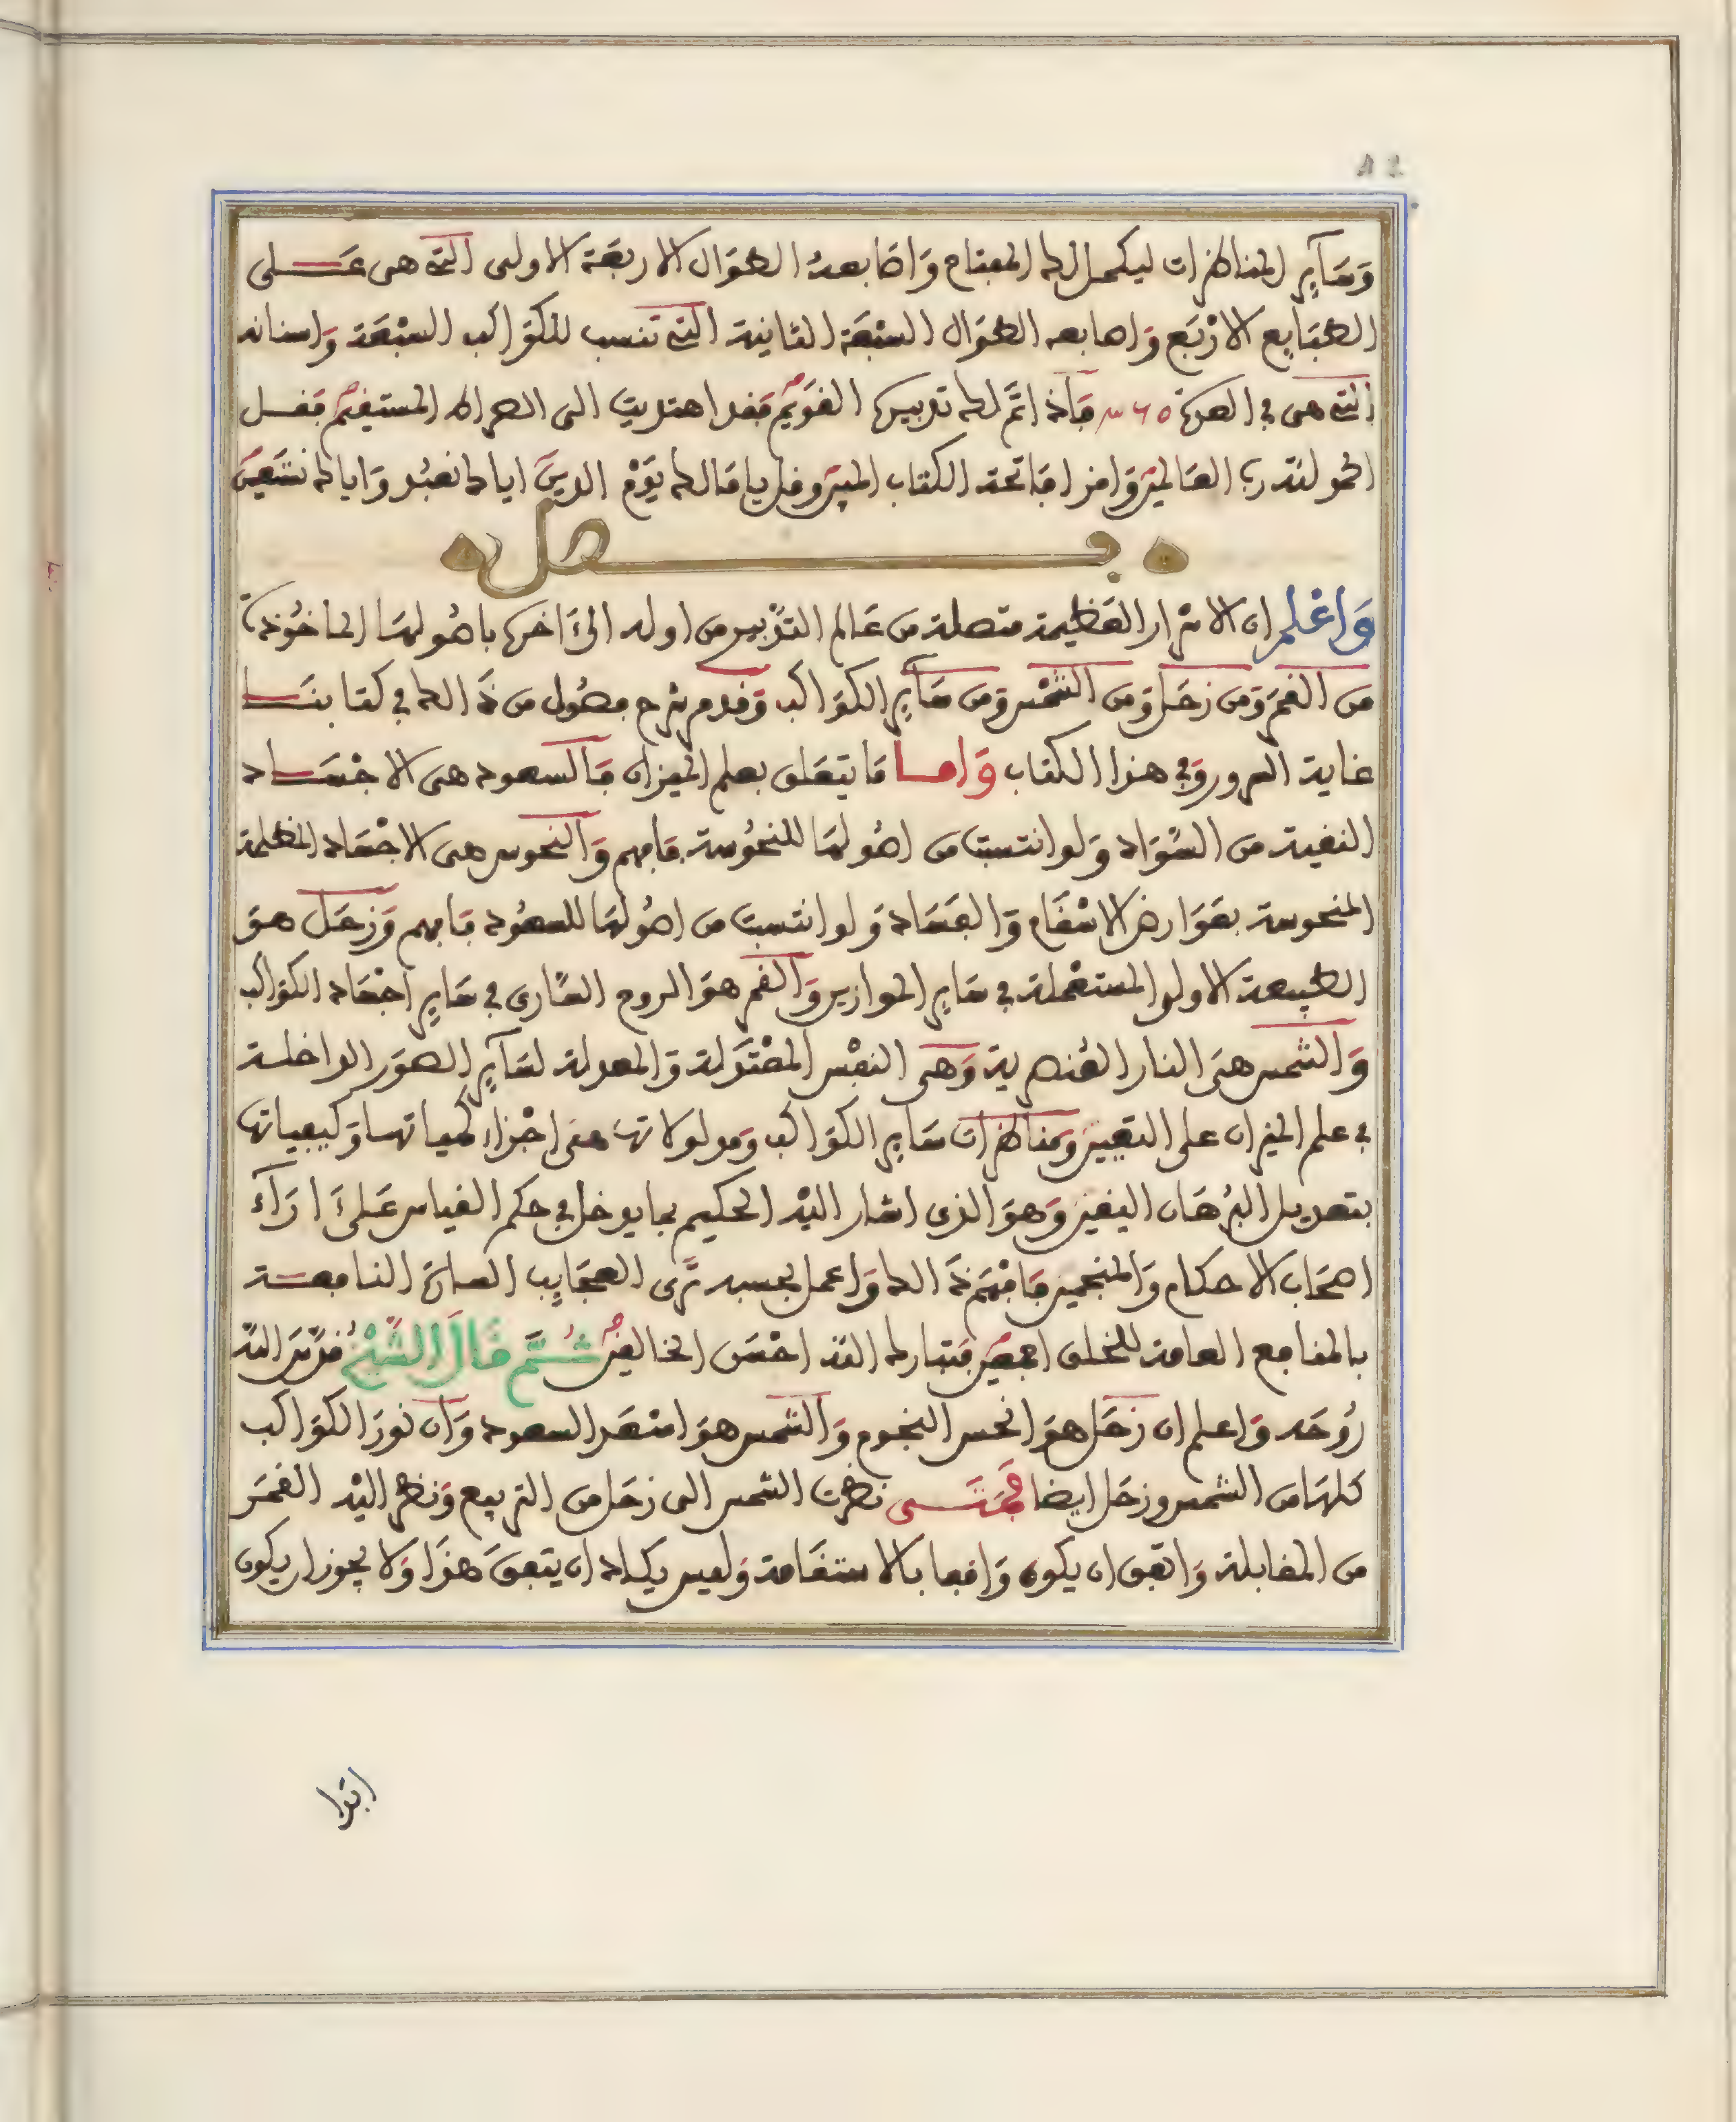 وَسَآيِرِ المناظرات ليكمل لك المفتاح وَاصَابعهُ الطوَال الاربعَة الاولى التي هى عَلى
الطبَايع الارْبَع وَاصابعه الطوَال السبْعَة الثانية التى تنسب للكوَاكب السبْعَة وَاسنانه
التى هى في العدة ٦٥ فَاذا اتَمَّ لك تدبيرك القوَيم فقد اهتديت الى الصراط المستقيم فقل
الحمد لله رب العَالمين وَاقرا فَاتحة الكتاب المبين وقل يا مَالك يَوْم الدين اياك نعبُد وَاياك نستَعين
فصل
وَاعْلم ان الاسْرار العَظيمة متصلة من عَالم التدْبير من اوله الىَ آخره باصُولهَا الماخُوذة
من القمر وَمن زحَل وَمن الشمْس وَمن سَآيِر الكوَاكب وَقدم شرح فصُول من ذَالك في كتابنَا
غاية السرور وَفي هذا الكتاب وَامـا مَا يتعَلق بعلم الميزان فَالسعود هى الاجْسَاد
النقية من السّوَاد وَلو انتسبت من اصُولهَا للنحُوسة فَافهم وَالنحوس هى الاجْسَاد المظلمة
المنحوسة بعَوَارض الاسْقَام وَالفسَاد وَلو انتسبت من اصُولهَا للسعُود فَافهم وَزحَل هوَ
الطبيعة الاولى المستعْملة في سَايِر الموازين وَالقمر هوَ الروح السّاري في سَايِر اجْسَاد الكوَاكب
وَالشمس هىَ النار العُنصرية وَهى النفْس المعْتدَلة وَالمعدلة لسَآيِر الصوَر الداخلة
في علم الميزان على التعيين وَمناظرات سَاير الكوَاكب وَمدلولاتهَا هىَ اجْزاء كمياتهَا وَكيفياتها
بتعديل البُرهَان اليقين وَهوَ الذى اشار اليْه الحكيم بما يدخل في حكم القياس عَلىَ ارَآء
اصحَاب الاحكام وَالمنجمين فَافْهَم ذَالك وَاعمل بحسبه تَرى العجَايِب السارة النافعـة
بالمنافع العامة للخلق اجمعين فتبارك الله احْسَن الخالقين ثُـمَّ قَالَ الشَّيْخُ قدّسَ الله
رُوحَه وَاعلم ان زحَل هوَ انحس النجوم وَالشمس هوَ اسْعَد السعود وَان نورَ الكوَاكب
كلهَا من الشمس وزحَل ايضا فَمَتَـى نظرت الشمس الى زحَل من التربيع وَنظر اليْه القمَر
من المقابلة وَاتفق ان يكون وَاقفا بالاستقَامة وَليس يكاد ان يتفقَ هذَا وَلا يجوز ان يكون
ابدا